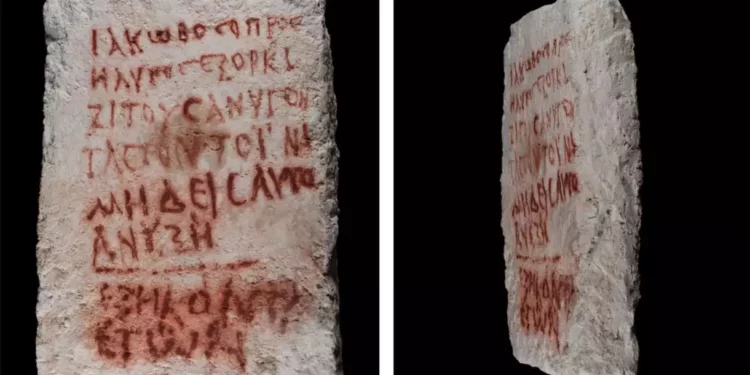 ΙΑΚΩΒΟϹΟΠΡΟϹ
ΗΛΥΤΟϹΕΞΟΡΚΙ
ΖΙΤΟΥϹΑΝΥΓΟΝ
ΤΑϹΤΟΥΤΟΙΝΑ
ΜΗΔΕΙϹΑΥΤΟ
ΑΝΥΞΗ
ΕΞΗΚΟΝΤΑ
ΕΤΩΝ
ΙΑΚΩΒΟϹΟΠΡΟϹ
ΗΛΥΤΟϹΕΞΟΡΚΙ
ΖΙΤΟΥϹΑΝΥΓΟΝ
ΤΑϹΤΟΥΤΟΙΝΑ
ΜΗΔΕΙϹΑΥΤΟ
ΑΝΥΞΗ
ΕΞΗΚΟΝΤΑ
ΕΤΩΝ